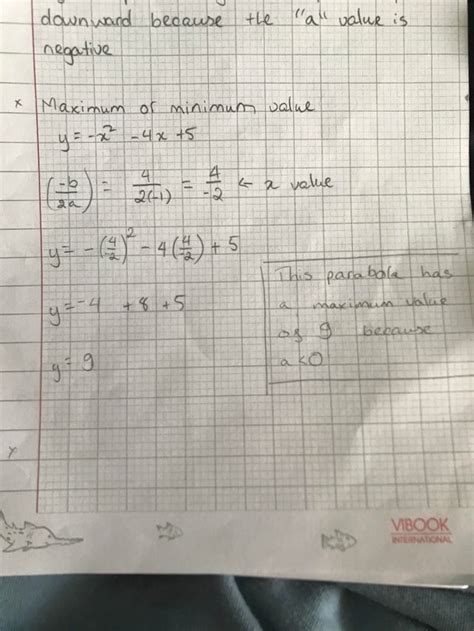 downward because the "a" value is
negative
x Maximum or minimum value
y = -x² - 4x + 5
(-b/2a) = 4/2(-1) = 4/-2 ← x value
y = -(4/-2)² - 4(4/-2) + 5
y = -4 + 8 + 5
y = 9
This parabola has
a maximum value
of 9 because
a<0
x
VIBOOK
INTERNATIONAL